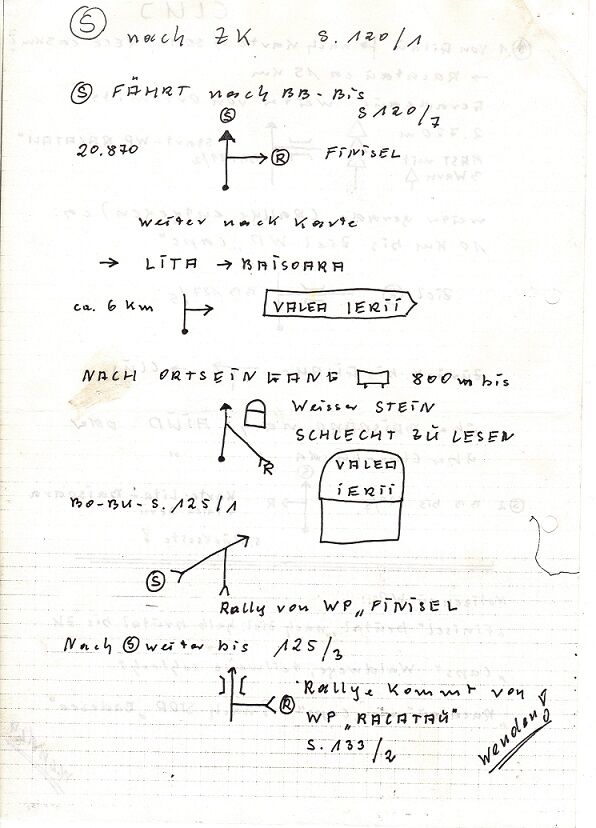 Ⓢ nach ZK S. 120/1
Ⓢ FÄHRT nach BB-Bis
S 120/7
Ⓢ
20.870 Ⓡ FINISEL
weiter nach Karte
→ LITA → BAISOARA
ca. 6 Km VALEA IERII
NACH ORTSEINGANG 800 m bis
Weisser STEIN
SCHLECHT ZU LESEN
R
VALEA
IERII
BO-BU-S. 125/1
Ⓢ
Rally von WP „FINISEL
Nach Ⓢ weiter bis 125/3
Ⓡ Rallye Kommt von
WP „RACATAU"
S. 133/2
wenden!